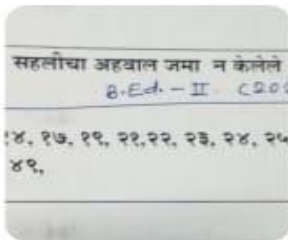 सहलीचा अहवाल जमा न केलेले
B.Ed. - II (200
१४, १७, १९, २१, २२, २३, २४, २५
४९,